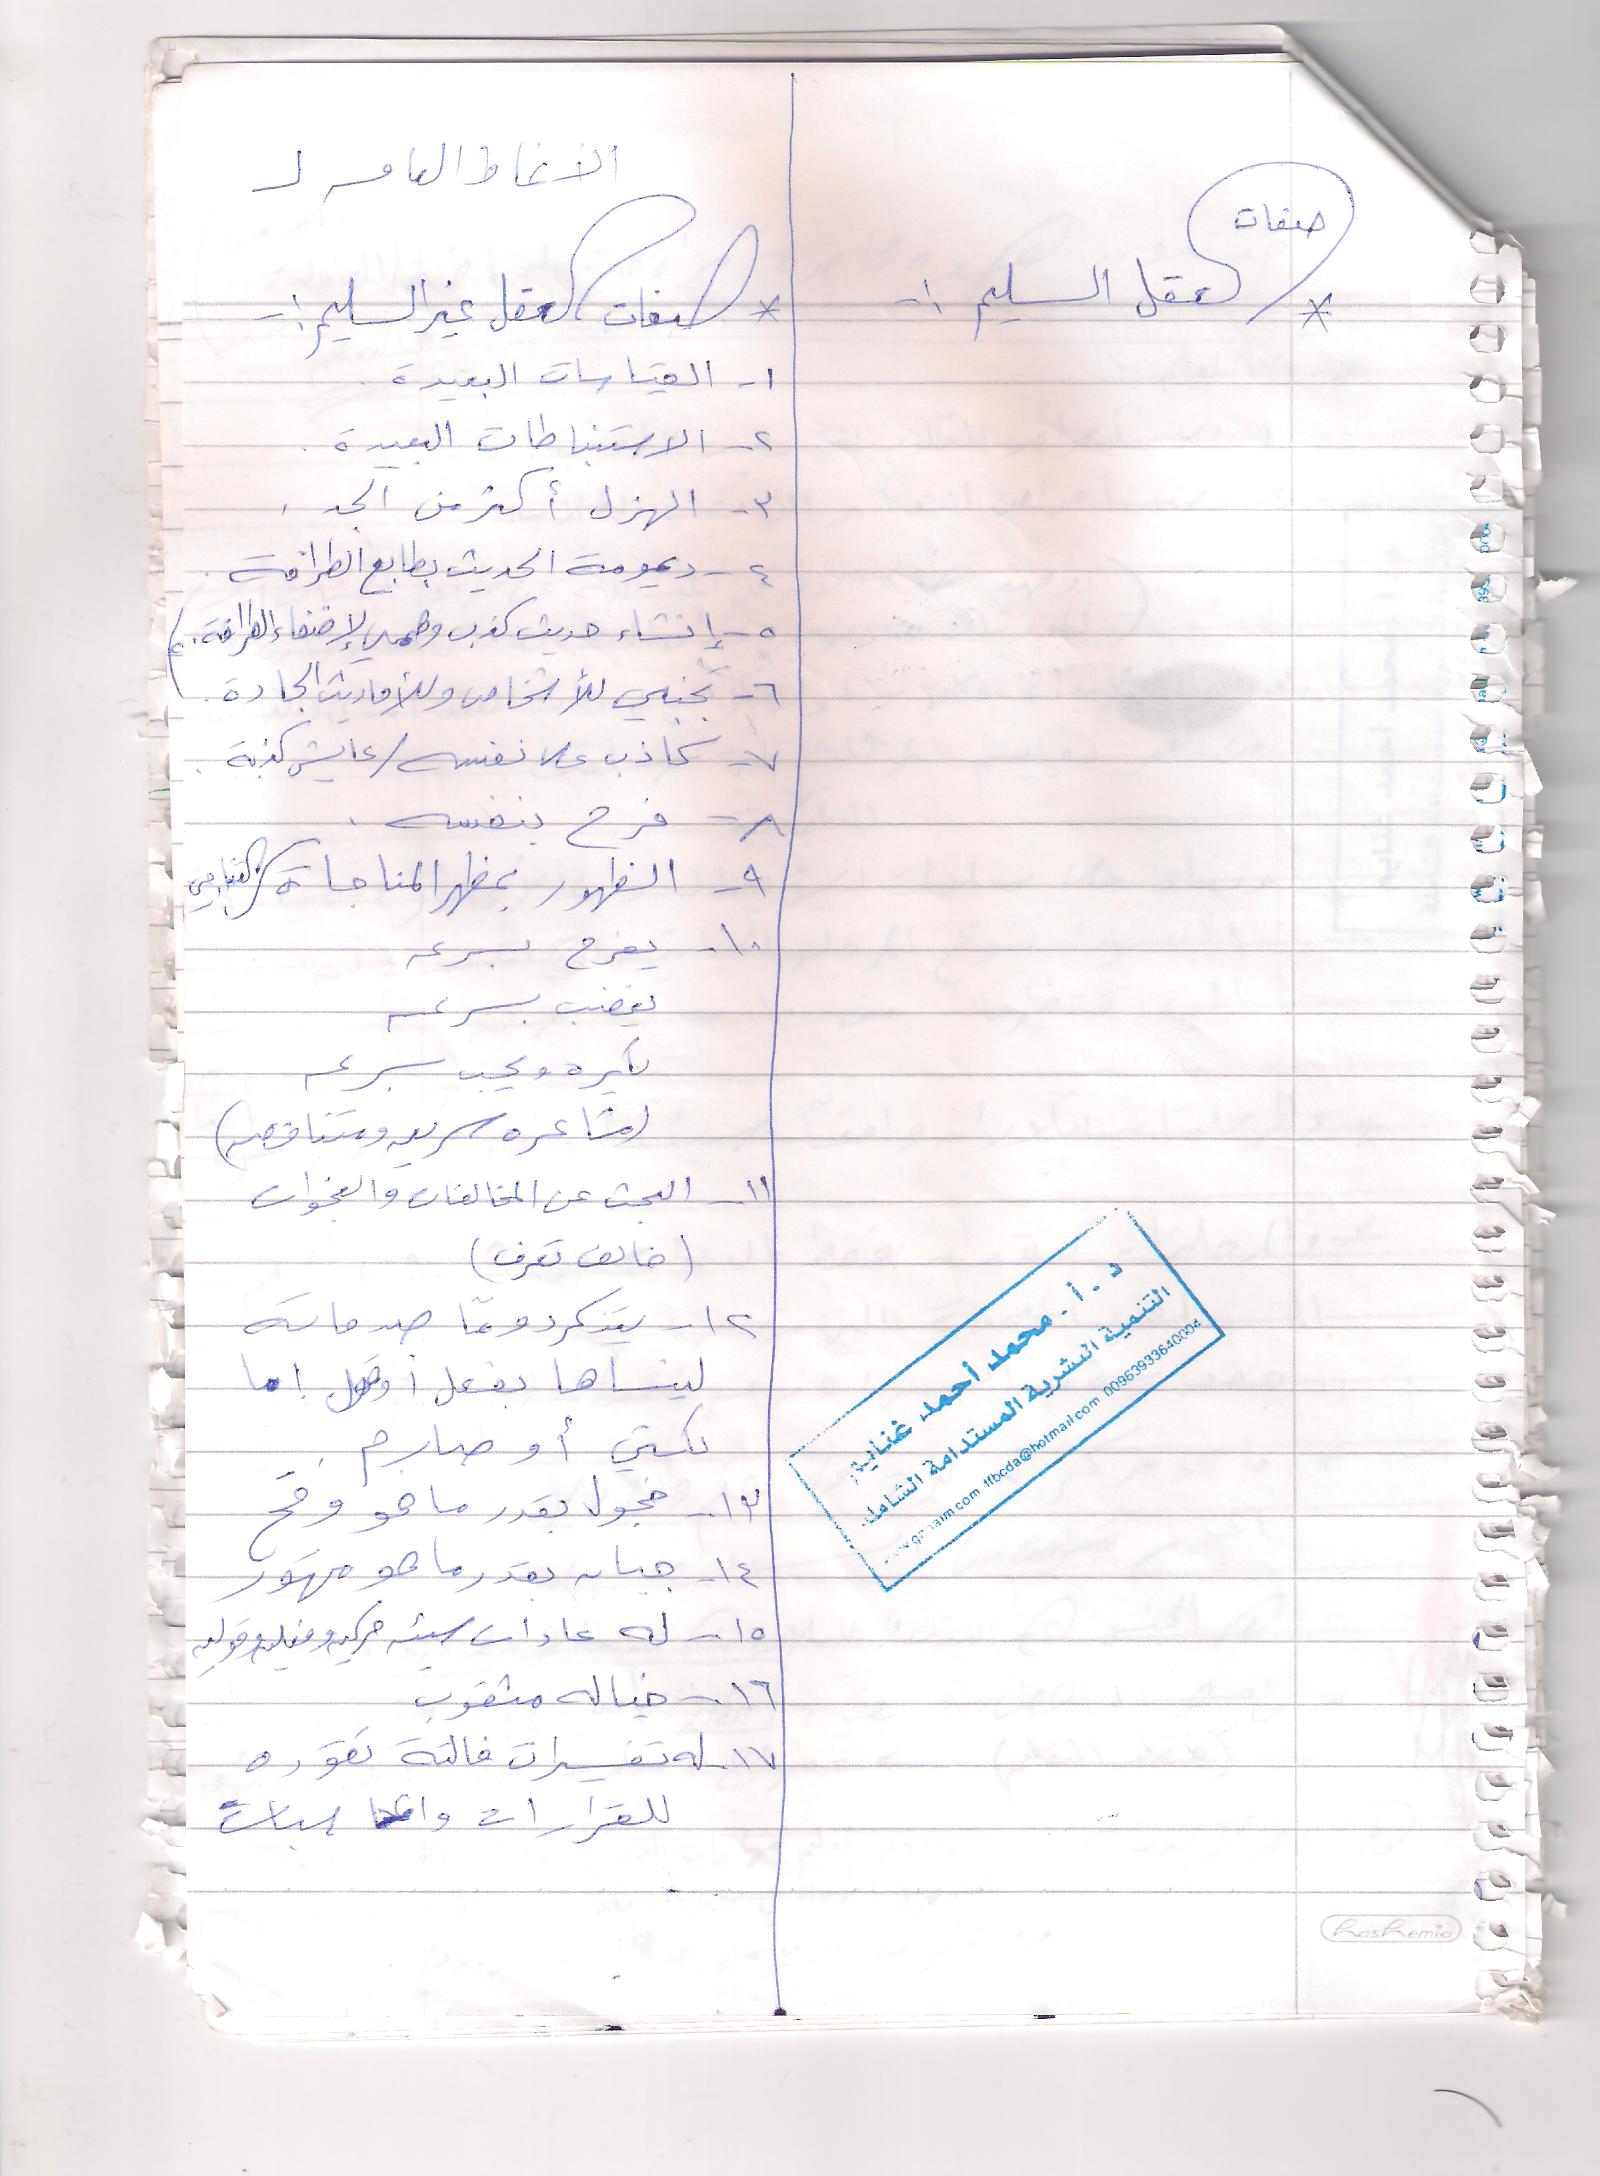 صفات
* العقل السليم :-
الأنماط العامه لـ
* صفات العقل غير السليم :-
١- القياسات البعيدة.
٢- الاستنباطات البعيدة.
٣- الهزل أكثر من الجد.
٤- ديمومة الحديث بطابع الطرافة.
٥- إنشاء حديث كذب وهمي لإضفاء الطرافة.
٦- تجنبي للأشخاص وللأحاديث الجادة.
٧- كاذب على نفسه / عايش كذبة.
٨- فرح بنفسه.
٩- الظهور بمظهر المناجاة
١٠- يفرح بسرعه
يغضب بسرعه
يكره ويحب بسرعه
(مشاعره سريعه ومتناقضه)
١١- البحث عن المخالفات والفجوات
(خالف تعرف)
١٢- يتذكر دومًا صدماته
لينساها بفعل أو قول إما
نكتي أو صارم.
١٣- خجول بقدر ما هو وقح
١٤- جبان بقدر ما هو متهور
١٥- له عادات سيئه حركيه وفعليه وقوليه
١٦- خياله مثقوب
١٧- له تفسيرات فالتة تقوده
للقرارات
د.أ.محمد أحمد غنايم
التنمية البشرية المستدامة الشاملة
ffbcda@hotmail.com 00963933640004
hashemia